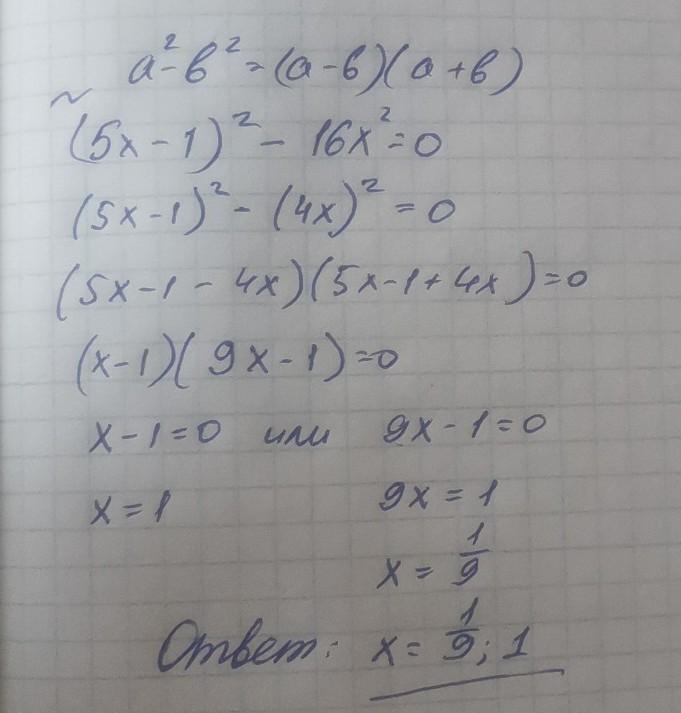 a² - b² = (a - b)(a + b)
~
(5x - 1)² - 16x² = 0
(5x - 1)² - (4x)² = 0
(5x - 1 - 4x)(5x - 1 + 4x) = 0
(x - 1)(9x - 1) = 0
x - 1 = 0 или 9x - 1 = 0
x = 1 9x = 1
x = 1/9
Ответ: x = 1/9; 1